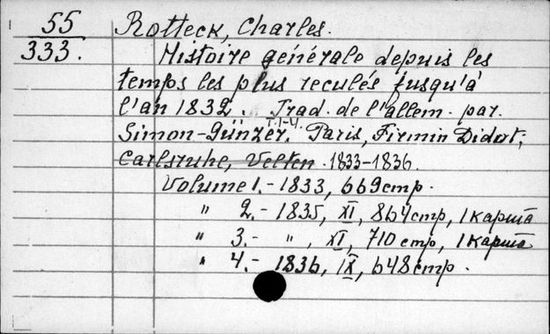 55
333.
Rotteck, Charles.
Histoire générale depuis les
temps les plus reculés jusqu'à
l'an 1832. Trad. de l'allem. par.
T.1-4.
Simon-Günzer. Paris, Firmin Didot,
Carlsruhe, Velten. 1833-1836.
Volume 1.- 1833, 669 стр.
" 2.- 1835, XI, 864 стр, 1 карта
" 3.- ", XI, 710 стр, 1 карта
" 4.- 1836, IX, 648 стр.